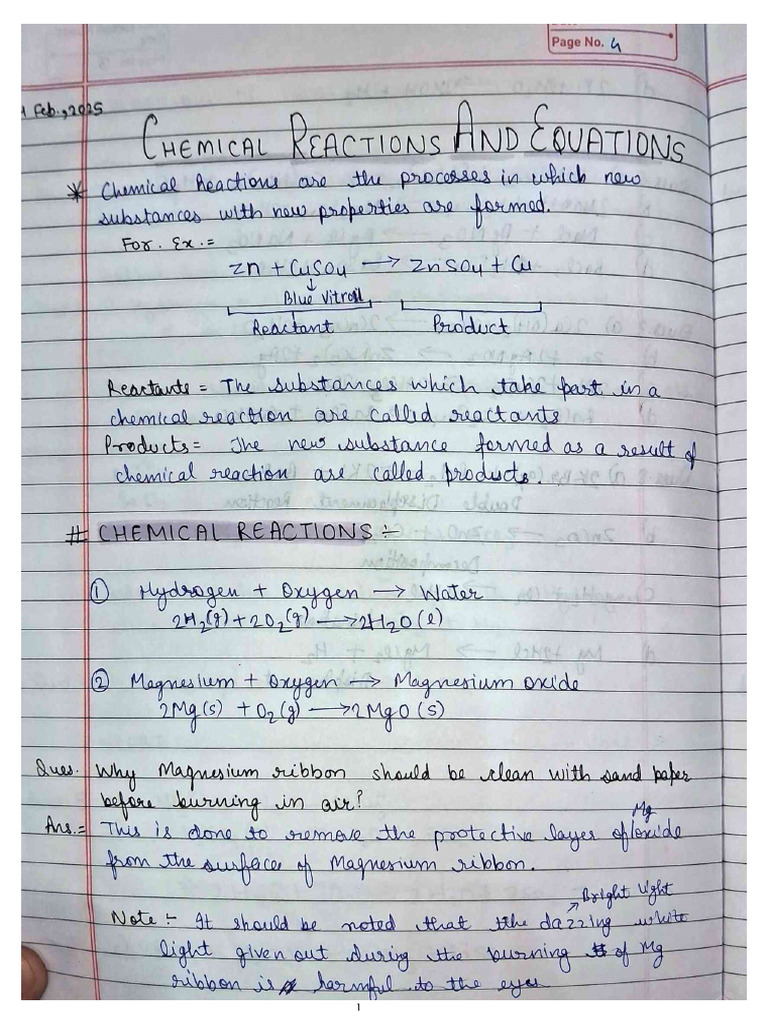 Page No. 4
Feb., 2025
CHEMICAL REACTIONS AND EQUATIONS
* Chemical Reactions are the processes in which new
substances with new properties are formed.
For. Ex. =
Zn + CuSO4 → ZnSO4 + Cu
↓
Blue Vitroil
Reactant Product
Reactants = The substances which take part in a
chemical reaction are called reactants
Products = The new substance formed as a result of
chemical reaction are called products.
# CHEMICAL REACTIONS :-
① Hydrogen + Oxygen → Water
2H2(g) + 2O2(g) → 2H2O(l)
② Magnesium + Oxygen → Magnesium oxide
2Mg(s) + O2(g) → 2MgO(s)
Ques. Why Magnesium ribbon should be clean with sand paper
before burning in air?
Mg
Ans. = This is done to remove the protective layer of oxide
from the surface of Magnesium ribbon.
Bright light
Note :- It should be noted that the dazzing white
light given out during the burning of Mg
ribbon is harmful to the eyes
1